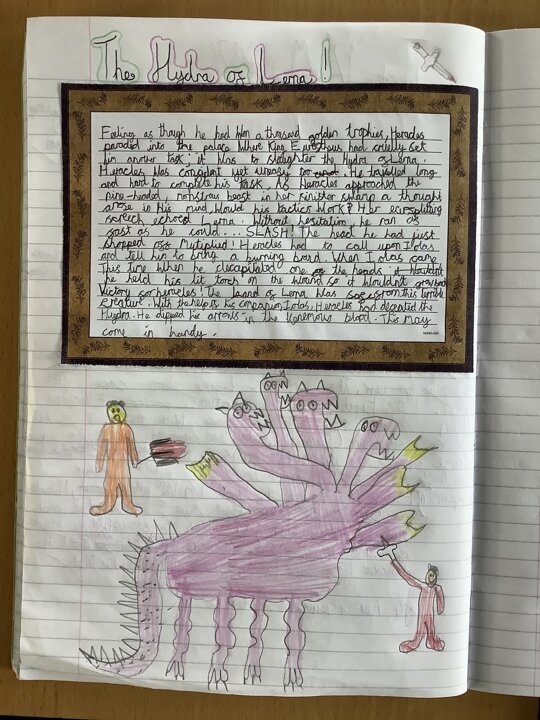 The Hydra of Lerna!
Feeling as though he had won a thousand golden trophies, Heracles
paraded into the palace where King Eurystheus had cruelly set
him another task; it was to slaughter the Hydra of Lerna.
Heracles was confident yet uneasy too. He travelled long
and hard to complete his task. As Heracles approached the
nine-headed, monstrous beast in her sinister swamp a thought
arose in his mind would his tactics work? Her earsplitting
screech echoed Lerna. Without hesitation, he ran as
fast as he could... SLASH! The head he had just
chopped off multiplied! Heracles had to call upon Iolas
and tell him to bring a burning brand. When Iolas came
This time when he decapitated one of the heads
he held his lit torch on the wound so it wouldn't grow back
Victory for heracles! The land of Lerna was safe from this terrible
creature. With the help of his companion, Iolas, Heracles had defeated the
Hydra. He dipped his arrows in the venomous blood. This may
come in handy.